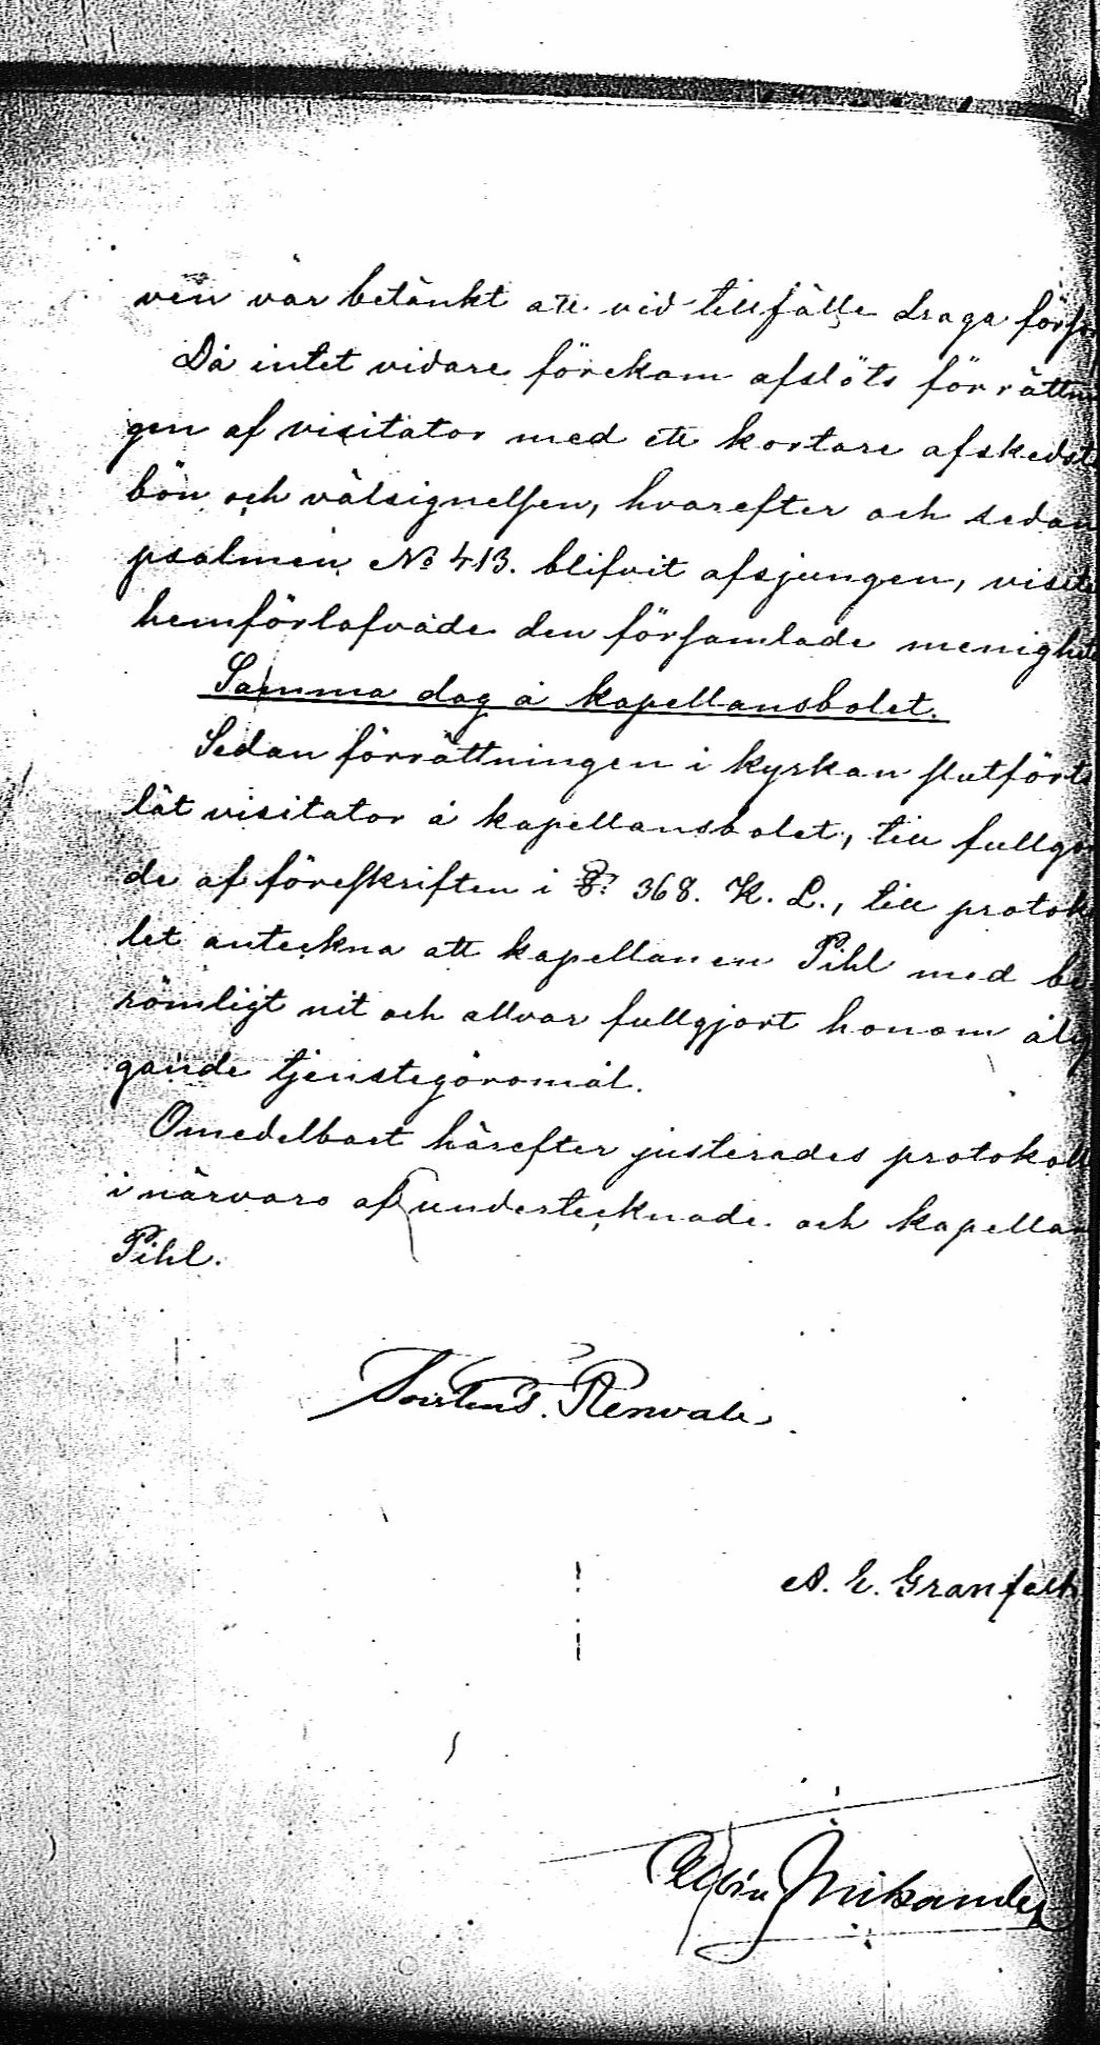 ven var betänkt att vid tillfälle draga förso
Då intet vidare förekom afslöts förrättnin
gen af visitator med ett kortare afskedst
bön och välsignelsen, hvarefter och sedan
psalmen No 413. blifvit afsjungen, visit
hemförlofvade den församlade menighet
Samma dag å kapellansbolet.
Sedan förrättningen i kyrkan slutförts
lät visitator å kapellansbolet, till fullgö
de af föreskriften i § 368. K. L., till protok
let anteckna att kapellanen Pihl med be
römligt nit och allvar fullgjort honom ålig
gande tjenstegöromål.
Omedelbart härefter justerades protokoll
i närvaro af undertecknade och kapellan
Pihl.
Torsten T. Renvall.
A. E. Granfelt
Mikander